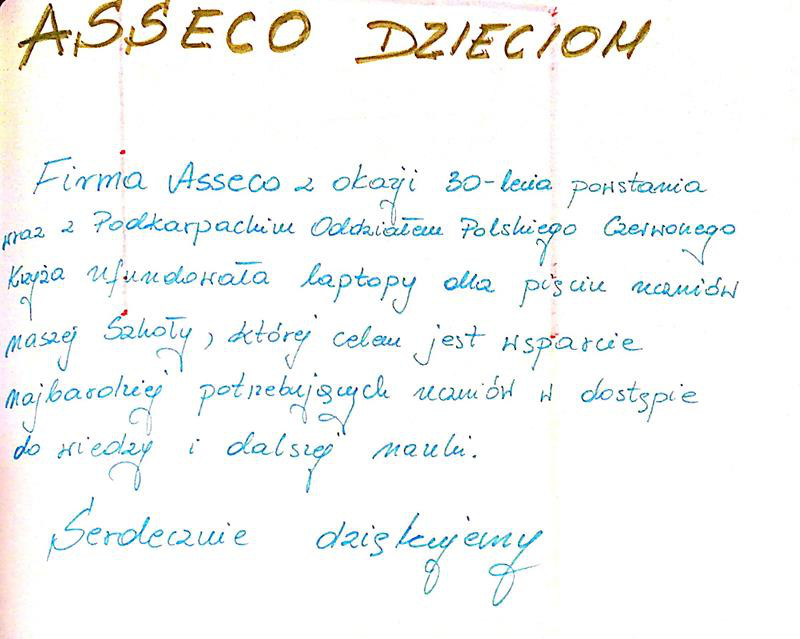 ASSECO DZIECIOM
Firma Asseco z okazji 30-lecia powstania
wraz z Podkarpackim Oddziałem Polskiego Czerwonego
Krzyża ufundowała laptopy dla pięciu uczniów
naszej Szkoły, której celem jest wsparcie
najbardziej potrzebujących uczniów w dostępie
do wiedzy i dalszej nauki.
Serdecznie dziękujemy